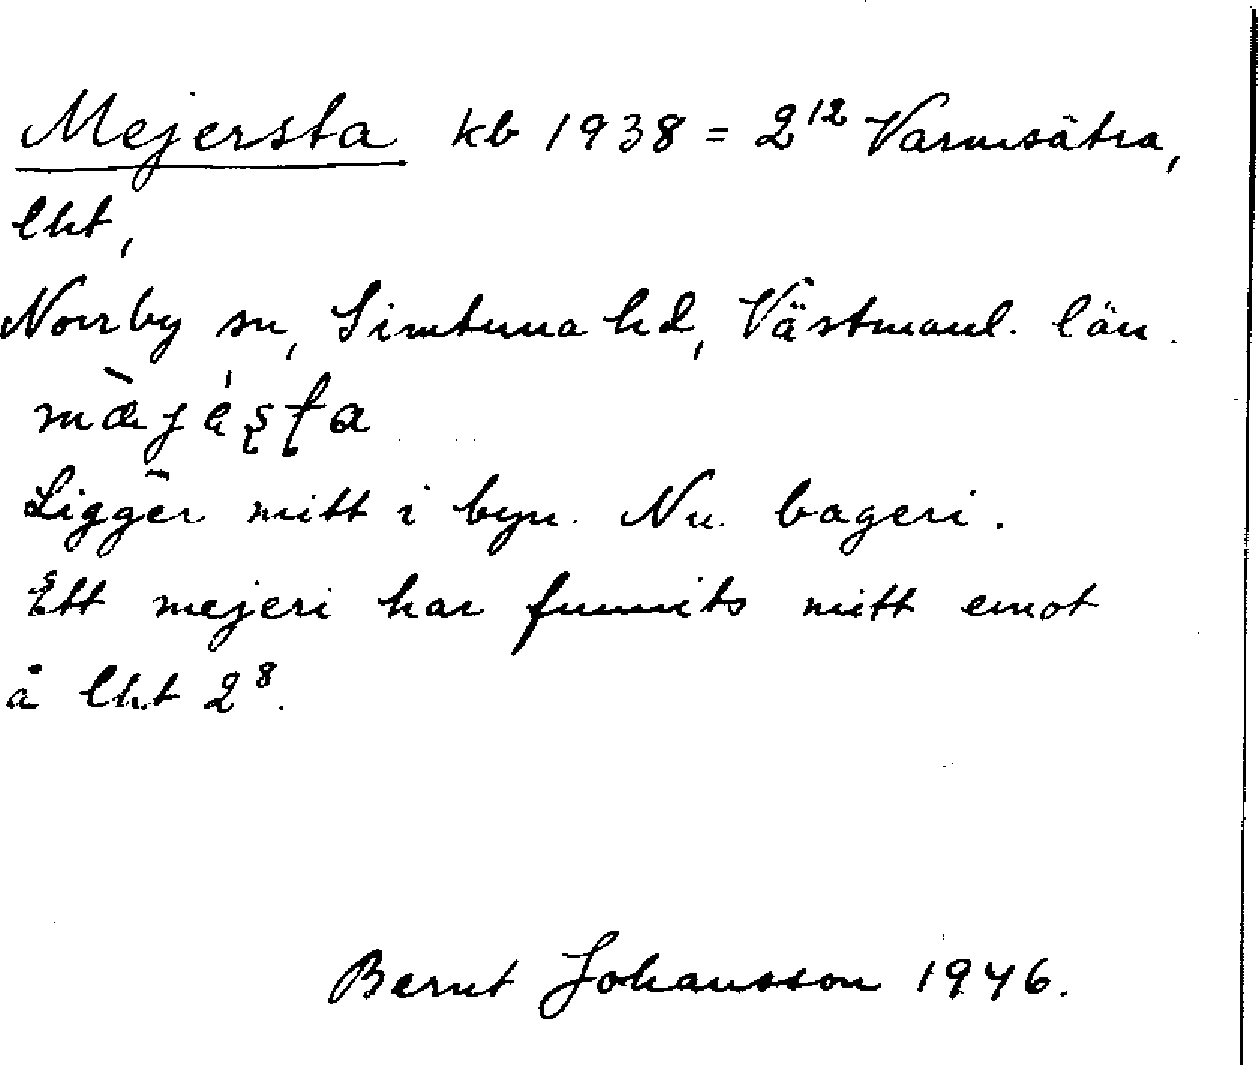 Mejersta kb 1938 = 2¹² Varmsätra,
lht,
Norrby sn, Simtuna hd, Västmanl. län.
mæ̀jésta
Ligger mitt i byn. Nu bageri.
Ett mejeri har funnits mitt emot
å lht 2⁸.
Bernt Johansson 1946.